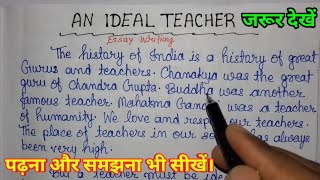 AN IDEAL TEACHER
जरूर देखें
Essay Writing
The history of India is a history of great
Gurus and teachers. Chanakya was the great
guru of Chandra Gupta. Buddha was another
famous teacher. Mahatma Gandhi was a teacher
of humanity. We love and respect our teachers.
The place of teachers in our so has always
been very high.
पढ़ना और समझना भी सीखें।
But a teacher must be